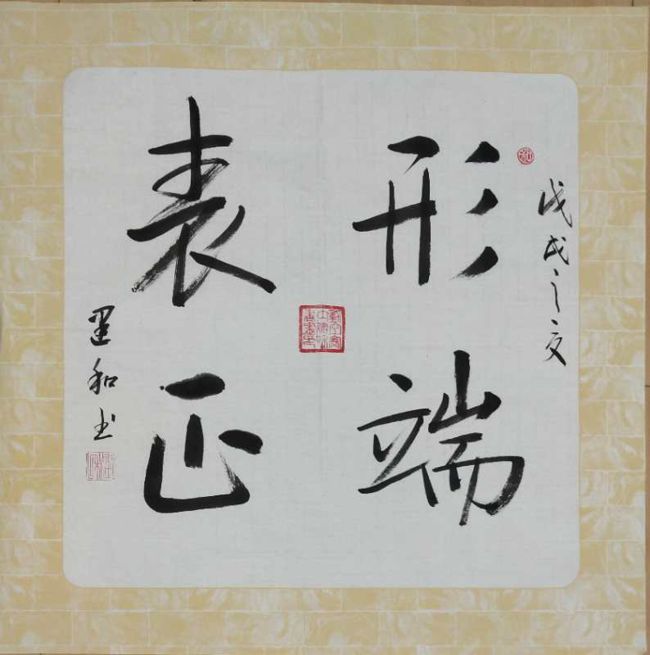 戊戌之夏
形端
表正
和书